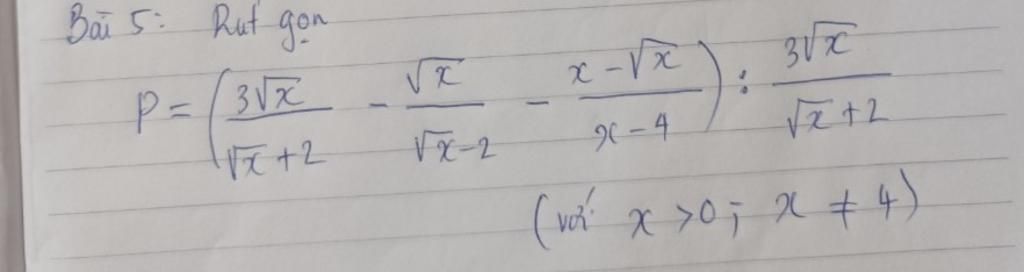 Bài 5: Rút gọn
P = (3√x / √x + 2 - √x / √x - 2 - x - √x / x - 4) : 3√x / √x + 2
(với x > 0; x ≠ 4)